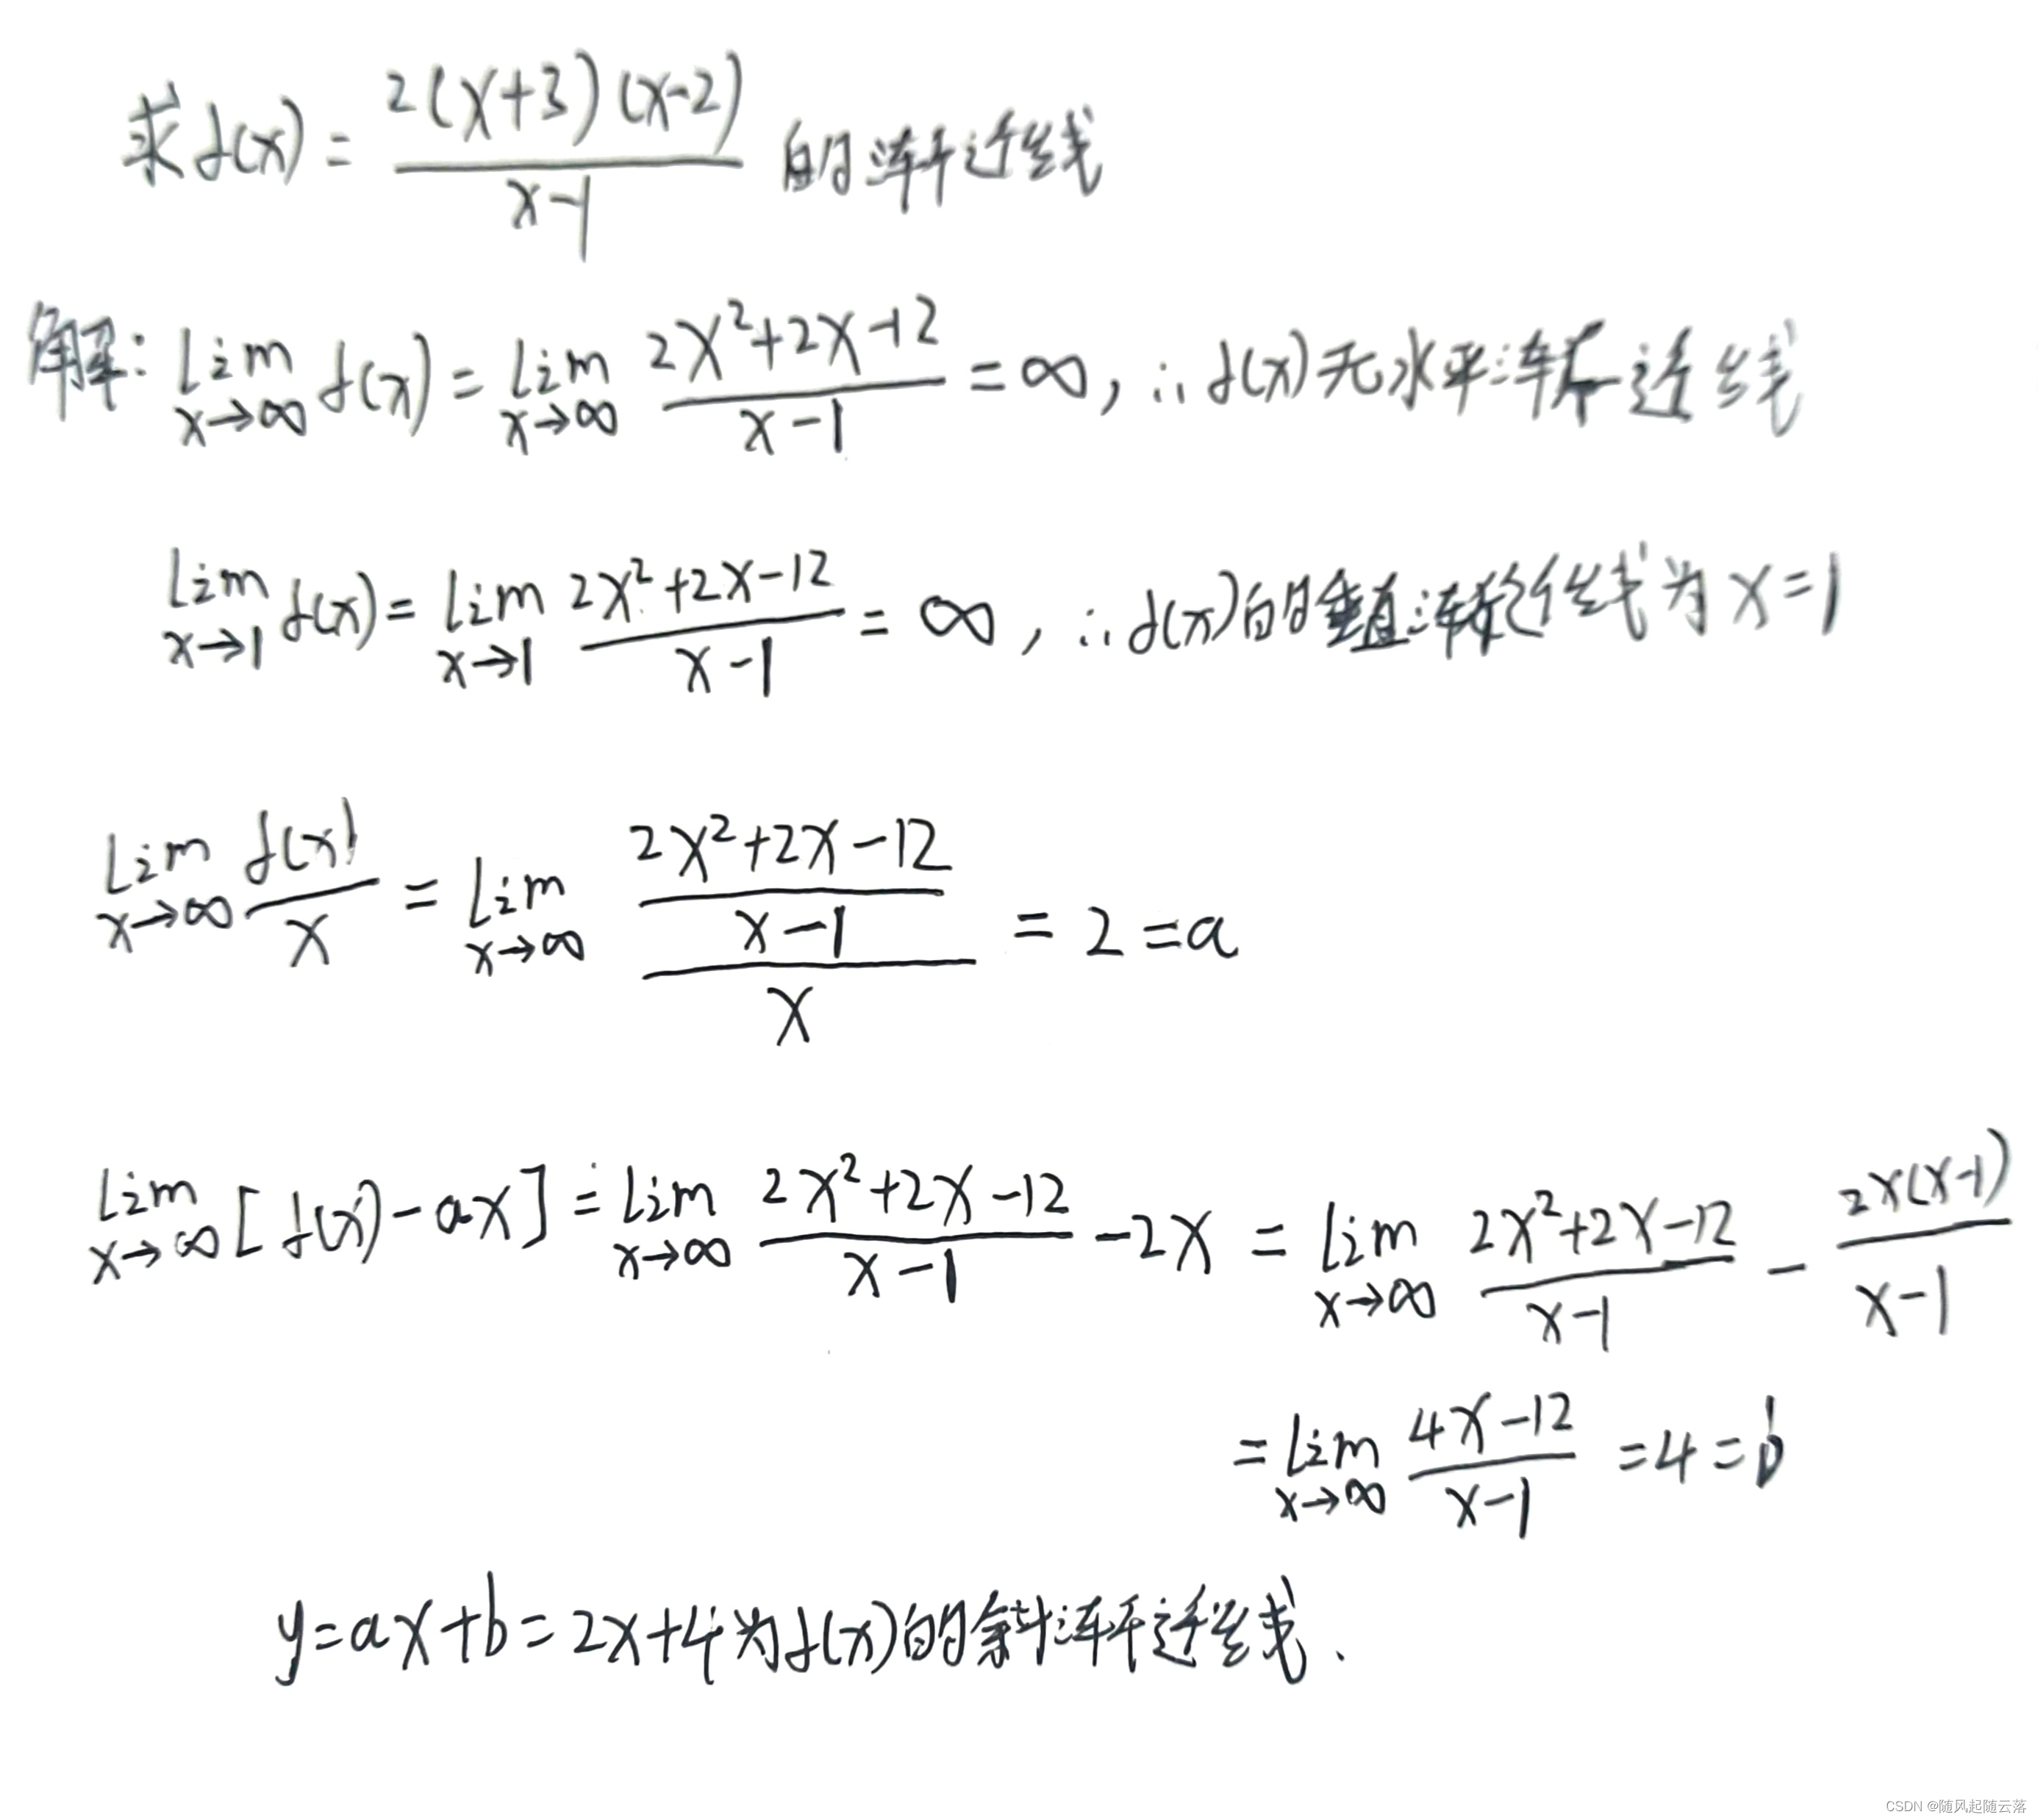 求f(x) = \frac{2(x+3)(x-2)}{x-1} 的渐近线
解: \lim_{x→∞} f(x) = \lim_{x→∞} \frac{2x²+2x-12}{x-1} = ∞, ∴ f(x)无水平渐近线
\lim_{x→1} f(x) = \lim_{x→1} \frac{2x²+2x-12}{x-1} = ∞, ∴ f(x)的垂直渐近线为 x=1
\lim_{x→∞} \frac{f(x)}{x} = \lim_{x→∞} \frac{\frac{2x²+2x-12}{x-1}}{x} = 2 = a
\lim_{x→∞} [f(x)-ax] = \lim_{x→∞} \frac{2x²+2x-12}{x-1} - 2x = \lim_{x→∞} \frac{2x²+2x-12}{x-1} - \frac{2x(x-1)}{x-1}
= \lim_{x→∞} \frac{4x-12}{x-1} = 4 = b
y=ax+b=2x+4为f(x)的斜渐近线.
CSDN @随风起随云落